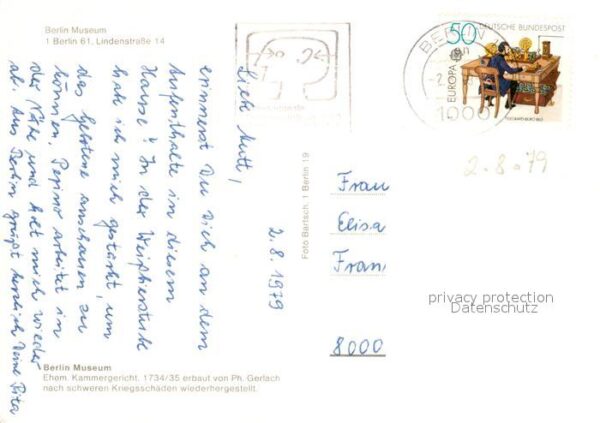 Berlin Museum
1 Berlin 61, Lindenstraße 14
Liebe Mutti,
erinnerst Du Dich an den
Aufenthalte in diesem
Hause? In der Weißbierstube
hab ich mich gestärkt, um
das Gestüne anschauen zu
können. Pepino arbeitet in
der Nähe und holt mich wieder
ab. Aus Berlin grüßt herzlich Deine Rita
2.8.1979
Foto Bartsch, 1 Berlin 19
BERLIN
1000
50
DEUTSCHE BUNDESPOST
EUROPA
2.8.79
Frau
Elisa
Fran
8000
privacy protection
Datenschutz
Berlin Museum
Ehem. Kammergericht. 1734/35 erbaut von Ph. Gerlach
nach schweren Kriegsschäden wiederhergestellt.